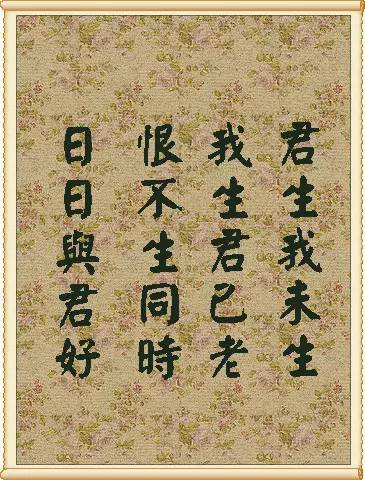 君生我未生
我生君已老
恨不生同時
日日與君好